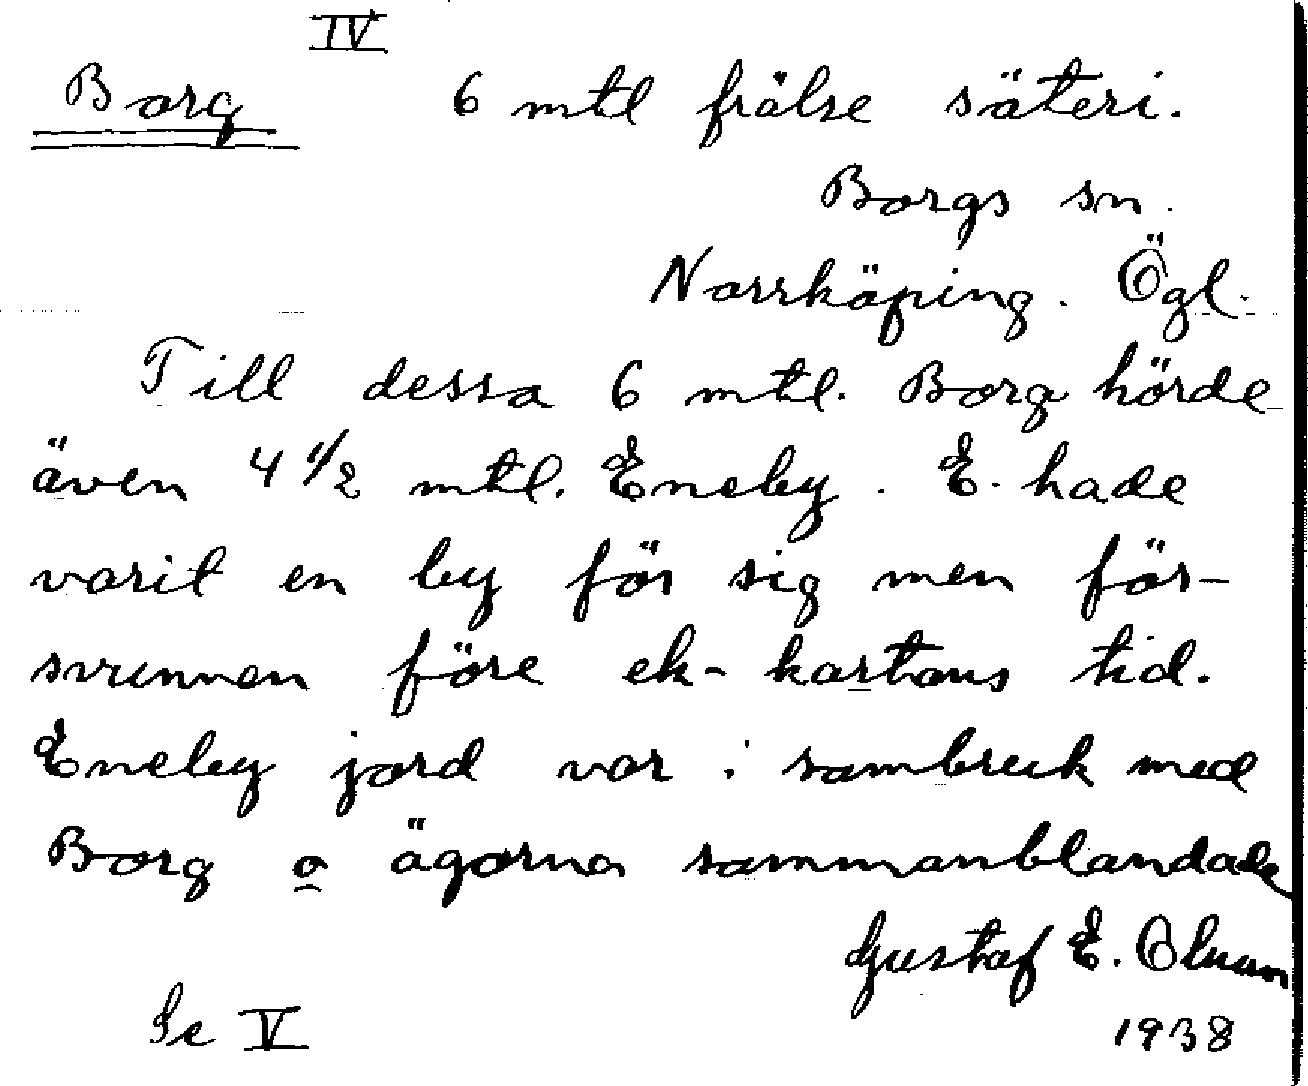 IV
Borg 6 mtl frälse säteri.
Borgs sn.
Norrköping. Ögl.
Till dessa 6 mtl. Borg hörde
även 4 1/2 mtl. Eneby. E. hade
varit en by för sig men för-
svunnen före ek-kartans tid.
Eneby jord var i sambruk med
Borg o ägorna sammanblandade
Gustaf E. Olsson
Se V 1938